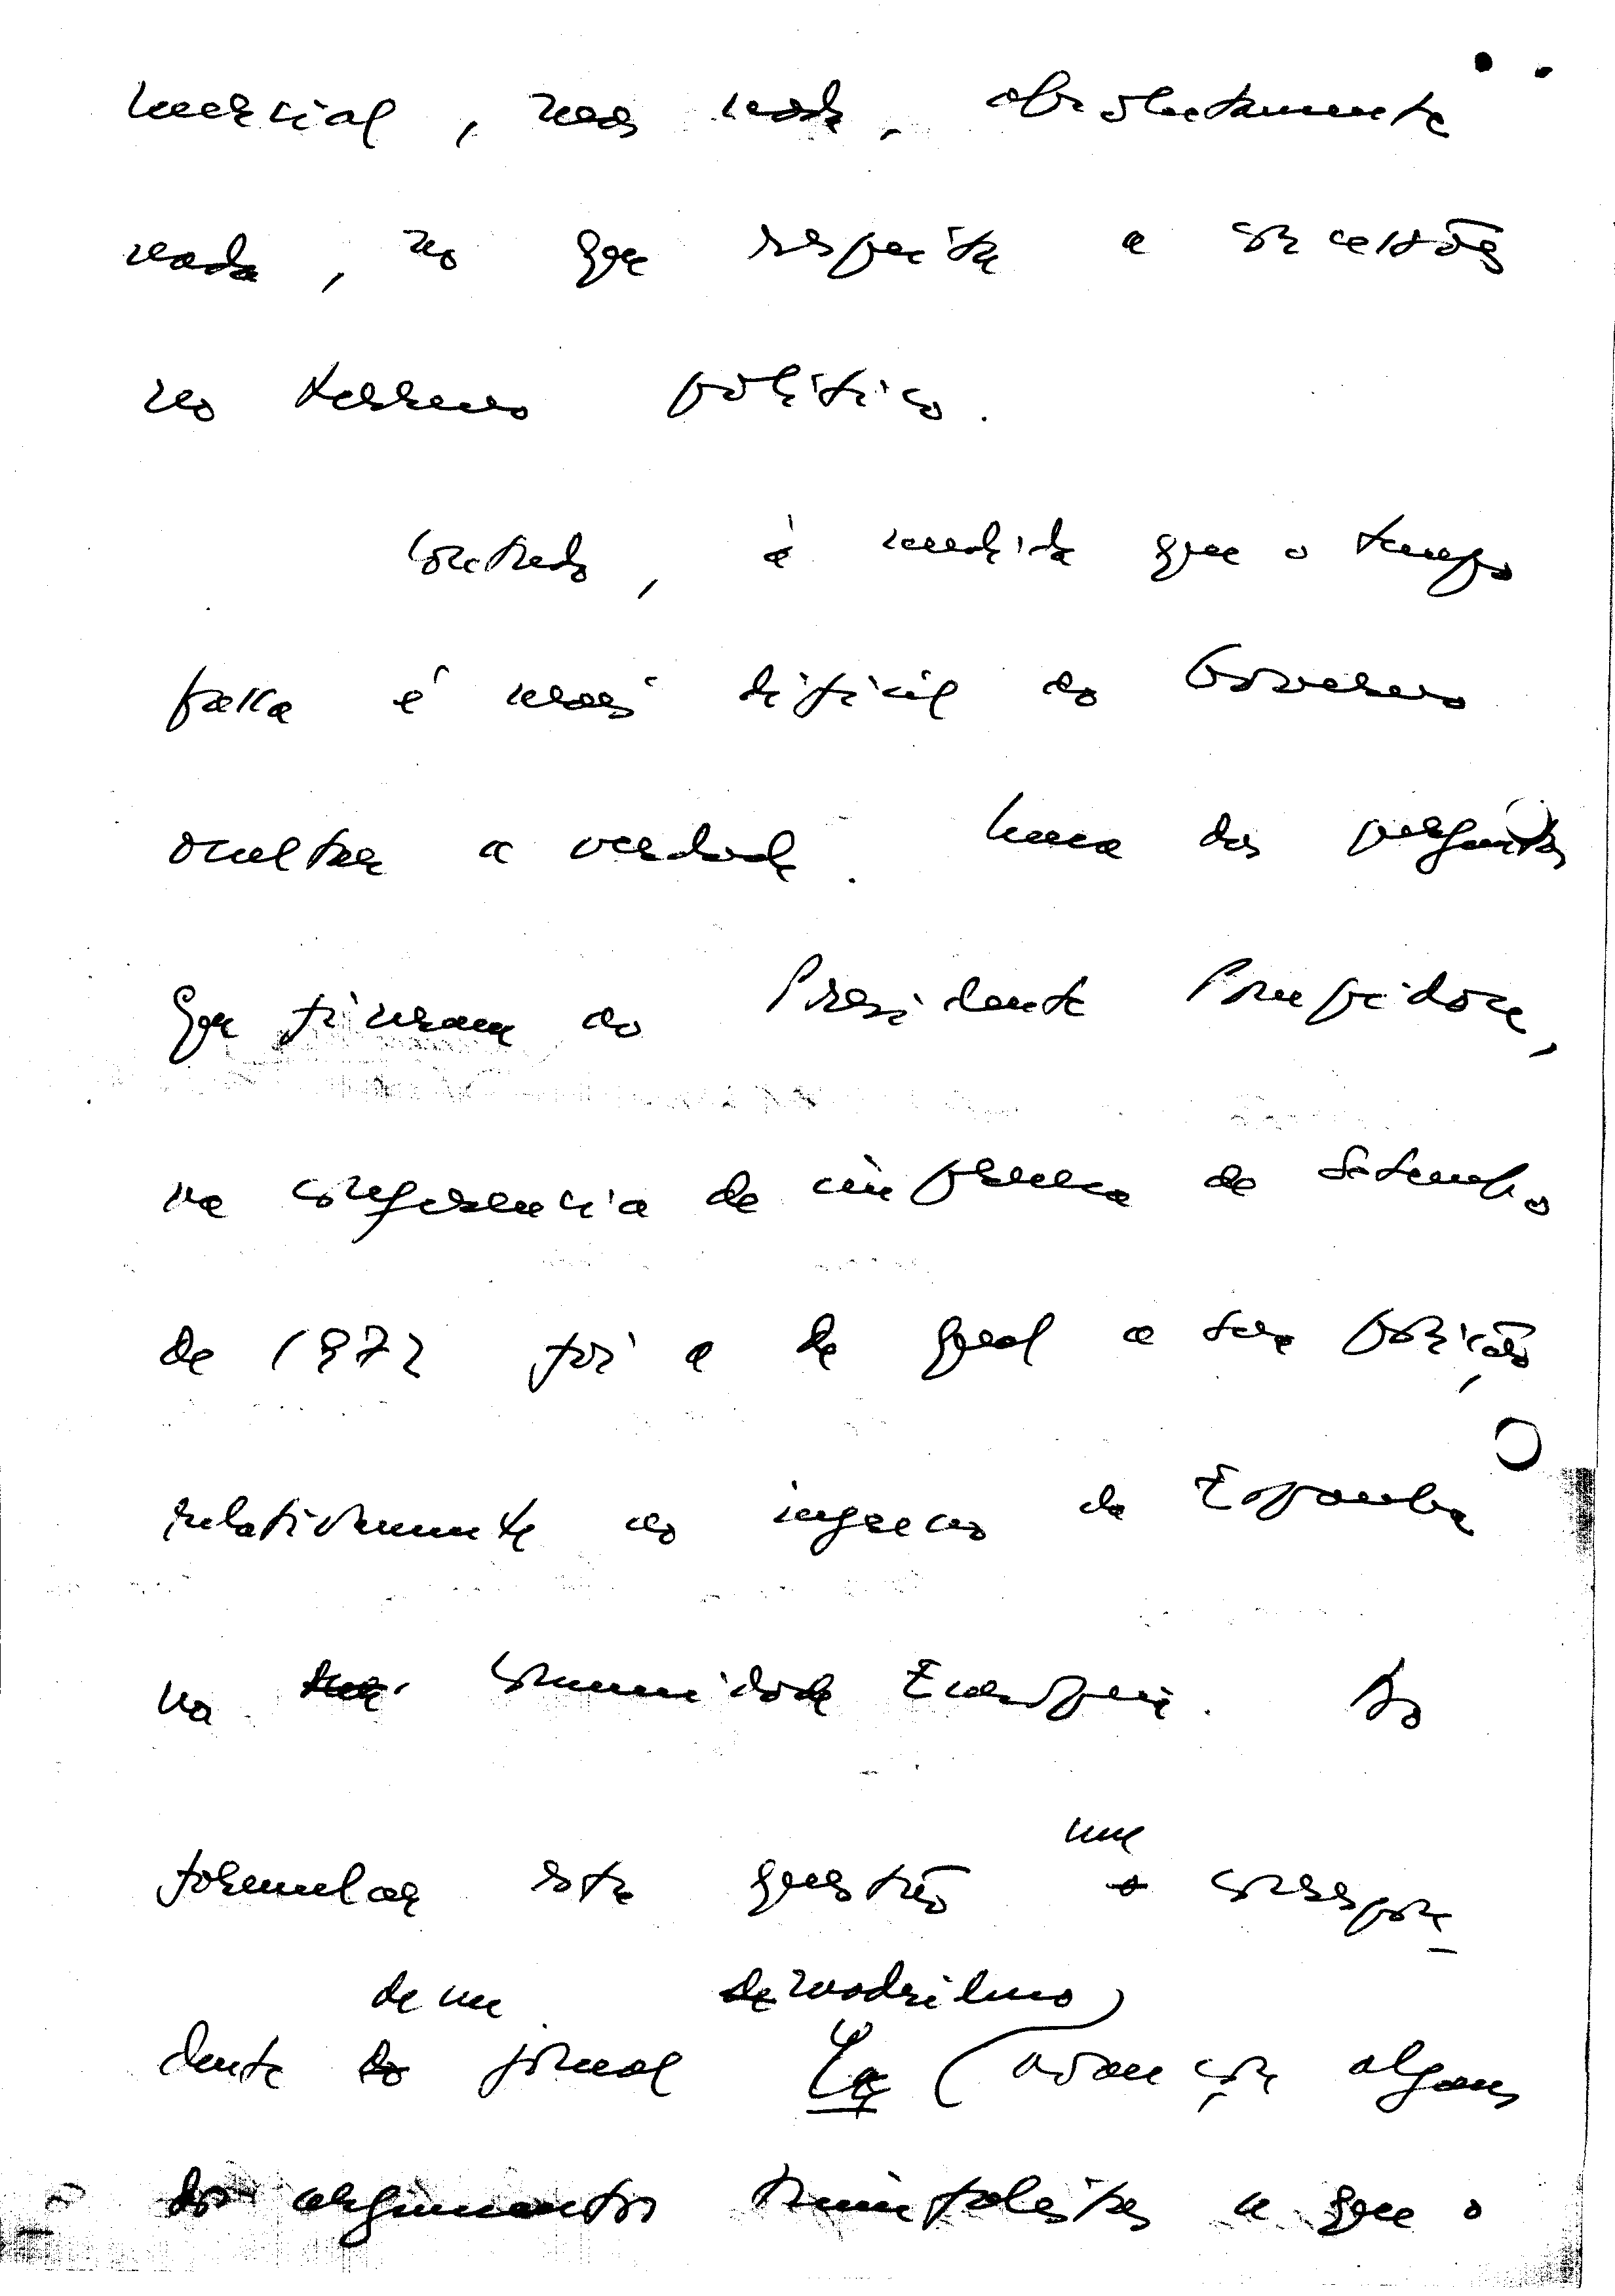 mercial, mas nada, absolutamente
nada, no que respeita a concessões
no terreno político.
Contudo, à medida que o tempo
passa é mais difícil ao Governo
ocultar a verdade. Uma das perguntas
que fizeram ao Presidente Pompidou,
na conferencia de imprensa de Setembro
de 1972 foi a de qual a sua posição
relativamente ao ingresso da Espanha
na Comunidade Europeia. Ao
formular esta questão um correspon-
dente de um jornal madrileno
Ya avançou alguns
dos argumentos triunfalistas a que o